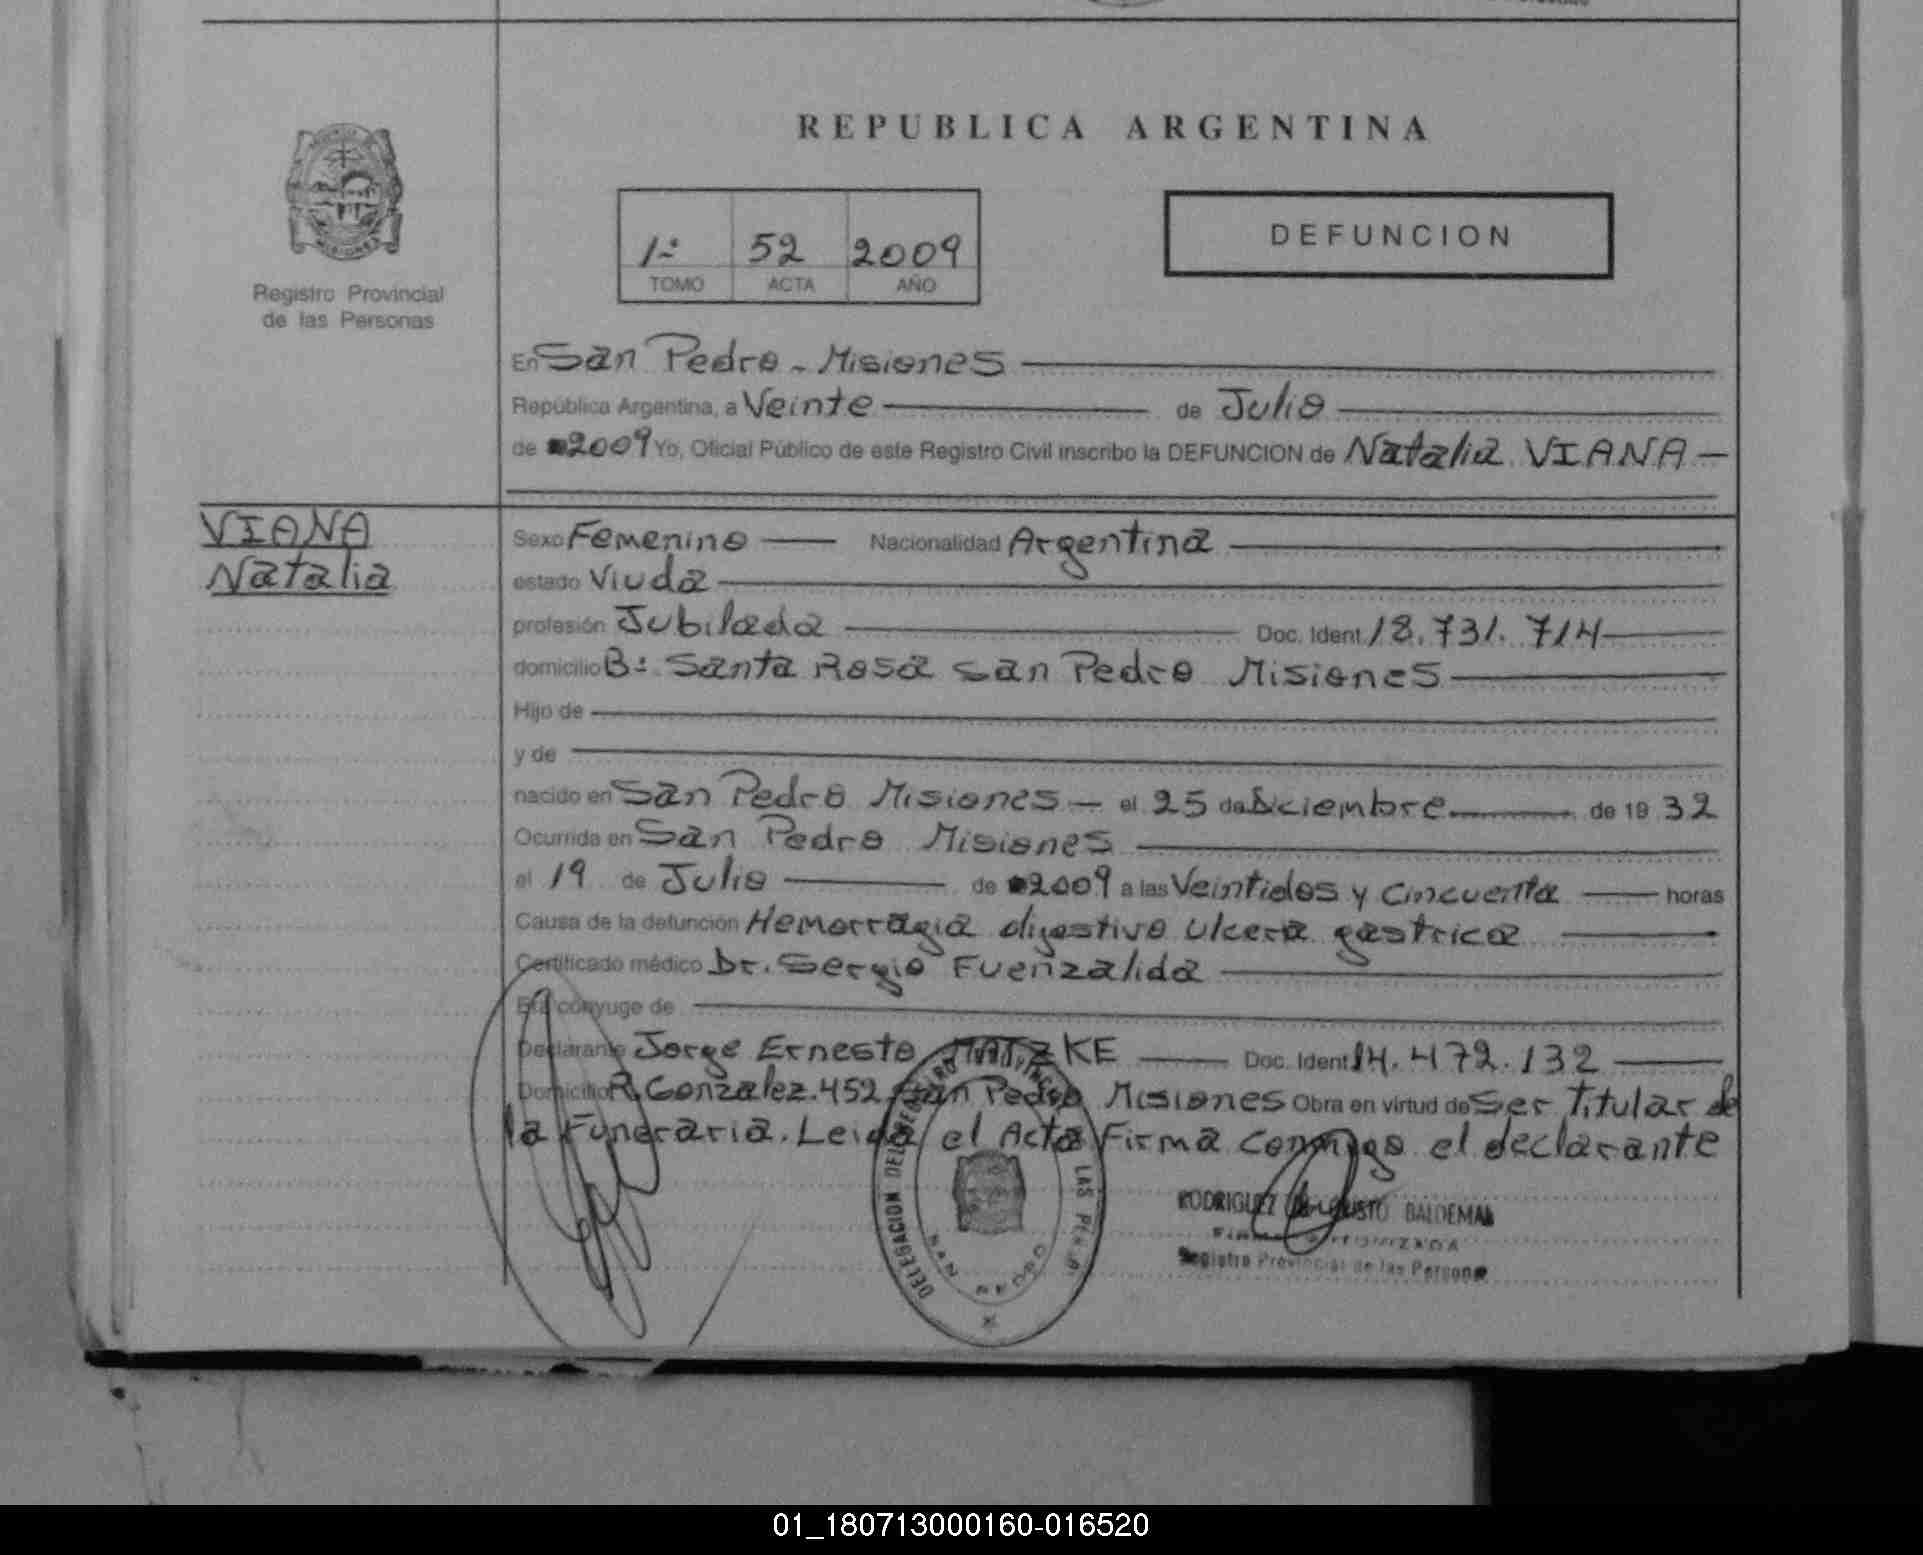 REPUBLICA ARGENTINA
1º 52 2009
TOMO ACTA AÑO
DEFUNCION
MISIONES
Registro Provincial
de las Personas
En San Pedro - Misiones
República Argentina, a Veinte de Julio
de 2009 Yo, Oficial Público de este Registro Civil inscribo la DEFUNCION de Natalia VIANA
VIANA
Natalia
Sexo Femenino Nacionalidad Argentina
estado Viuda
profesión Jubilada Doc. Ident 18.731.714
domicilio Bº Santa Rosa San Pedro Misiones
Hijo de
y de
nacido en San Pedro Misiones el 25 de Diciembre de 19 32
Ocurrida en San Pedro Misiones
el 19 de Julio de 2009 a las Veintidos y Cincuenta horas
Causa de la defunción Hemorragia digestivo Ulcera gastrica
Certificado médico Dr. Sergio Fuenzalida
Era cónyuge de
Declarante Jorge Ernesto Doc. Ident 14.472.132
Domicilio R. Gonzalez. 452 San Pedro Misiones Obra en virtud de Ser Titular de
la Funeraria. Leida el Acta Firma conmigo el declarante
DELEGACION DEL REGISTRO PROVINCIAL LAS
SAN PEDRO
RODRIGUEZ BALDEMAR
Registro Provincial de las Persona
01_180713000160-016520